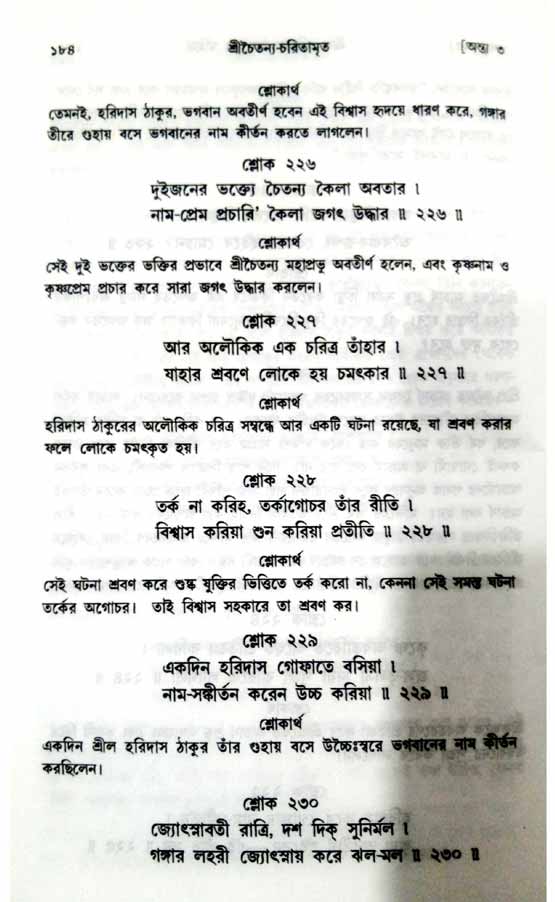 ১৮৪ শ্রীচৈতন্য-চরিতামৃত [অন্ত্য ৩
শ্লোকার্থ
তেমনই, হরিদাস ঠাকুর, ভগবান অবতীর্ণ হবেন এই বিশ্বাস হৃদয়ে ধারণ করে, গঙ্গার
তীরে গুহায় বসে ভগবানের নাম কীর্তন করতে লাগলেন।
শ্লোক ২২৬
দুইজনের ভক্ত্যে চৈতন্য কৈলা অবতার ।
নাম-প্রেম প্রচারি' কৈলা জগৎ উদ্ধার ॥ ২২৬ ॥
শ্লোকার্থ
সেই দুই ভক্তের ভক্তির প্রভাবে শ্রীচৈতন্য মহাপ্রভু অবতীর্ণ হলেন, এবং কৃষ্ণনাম ও
কৃষ্ণপ্রেম প্রচার করে সারা জগৎ উদ্ধার করলেন।
শ্লোক ২২৭
আর অলৌকিক এক চরিত্র তাঁহার ।
যাহার শ্রবণে লোকে হয় চমৎকার ॥ ২২৭ ॥
শ্লোকার্থ
হরিদাস ঠাকুরের অলৌকিক চরিত্র সম্বন্ধে আর একটি ঘটনা রয়েছে, যা শ্রবণ করার
ফলে লোকে চমৎকৃত হয়।
শ্লোক ২২৮
তর্ক না করিহ, তর্কাগোচর তাঁর রীতি ।
বিশ্বাস করিয়া শুন করিয়া প্রতীতি ॥ ২২৮ ॥
শ্লোকার্থ
সেই ঘটনা শ্রবণ করে শুষ্ক যুক্তির ভিত্তিতে তর্ক করো না, কেননা সেই সমস্ত ঘটনা
তর্কের অগোচর। তাই বিশ্বাস সহকারে তা শ্রবণ কর।
শ্লোক ২২৯
একদিন হরিদাস গোফাতে বসিয়া ।
নাম-সঙ্কীর্তন করেন উচ্চ করিয়া ॥ ২২৯ ॥
শ্লোকার্থ
একদিন শ্রীল হরিদাস ঠাকুর তাঁর গুহায় বসে উচ্চৈঃস্বরে ভগবানের নাম কীর্তন
করছিলেন।
শ্লোক ২৩০
জ্যোৎস্নাবতী রাত্রি, দশ দিক্ সুনির্মল ।
গঙ্গার লহরী জ্যোৎস্নায় করে ঝল-মল ॥ ২৩০ ॥